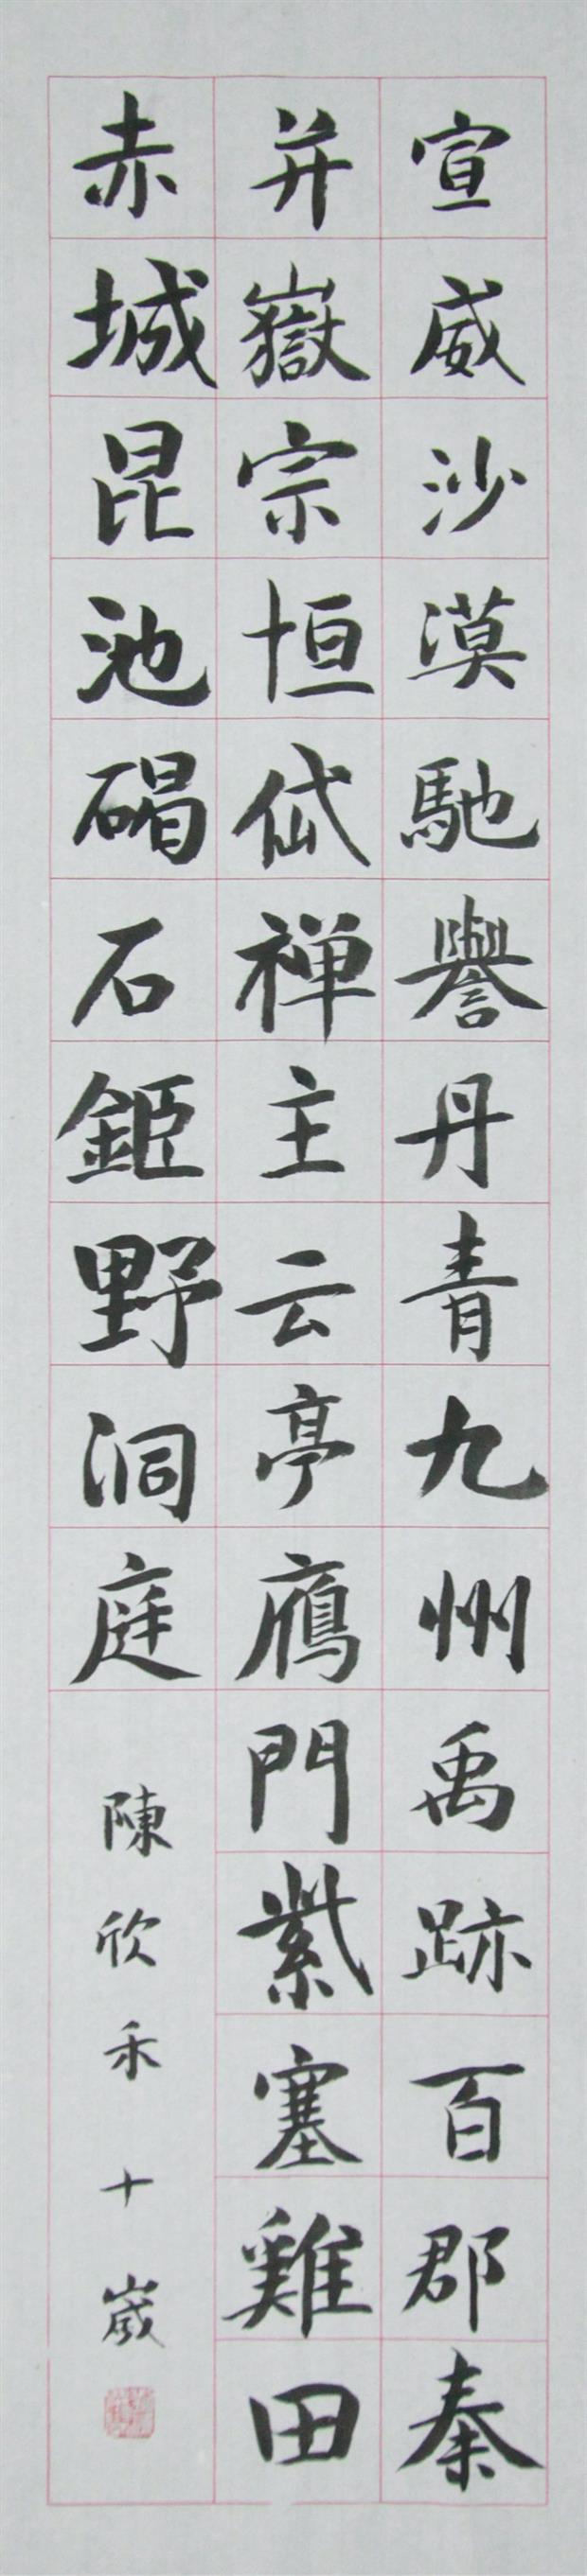 宣威沙漠馳譽丹青九州禹跡百郡秦
并嶽宗恒岱禅主云亭鴈門紫塞雞田
赤城昆池碣石鉅野洞庭
陳欣禾十嵗